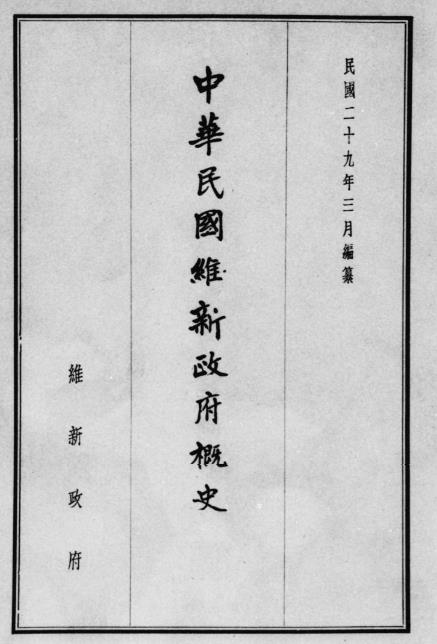 民國二十九年三月編纂
中華民國維新政府概史
維新政府